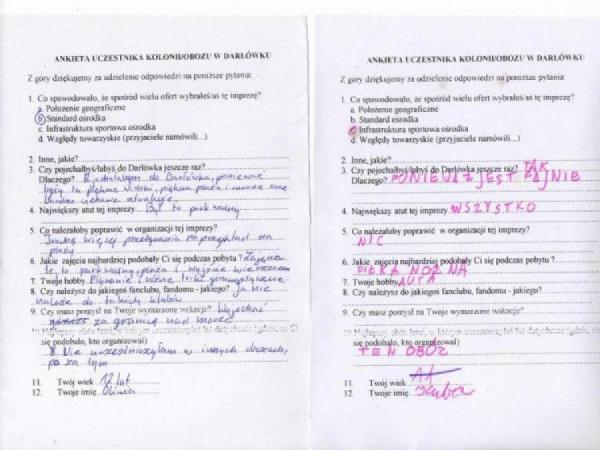 ANKIETA UCZESTNIKA KOLONII/OBOZU W DARŁÓWKU
Z góry dziękujemy za udzielenie odpowiedzi na poniższe pytania:
1. Co spowodowało, że spośród wielu ofert wybrałeś/aś tę imprezę?
a. Położenie geograficzne
b Standard ośrodka
c. Infrastruktura sportowa ośrodka
d. Względy towarzyskie (przyjaciele namówili...)
2. Inne, jakie?
3. Czy pojechałbyś/łabyś do Darłówka jeszcze raz?
Dlaczego? do Darłówka, ponieważ
były tu piękne widoki, piękna plaża i morze oraz
bardzo ciekawe atrakcje.
4. Największy atut tej imprezy Był to park wodny
5. Co należałoby poprawić w organizacji tej imprezy?
więcej na przykład na
plaży
6. Jakie zajęcia najbardziej podobały Ci się podczas pobytu?
te to park wodny, plaża i wyjście wieczorem
7. Twoje hobby Pływanie i różne triki gimnastyczne
8. Czy należysz do jakiegoś fanclubu, fandomu - jakiego? Ja nie
należę do takich klubów
9. Czy masz pomysł na Twoje wymarzone wakacje? Wyjechać
za granicę nad morze
się podobało, kto organizował)
Nie uczestniczyłam w innych obozach,
po za tym
11. Twój wiek 12 lat
12. Twoje imię Oliwia
ANKIETA UCZESTNIKA KOLONII/OBOZU W DARŁÓWKU
Z góry dziękujemy za udzielenie odpowiedzi na poniższe pytania:
1. Co spowodowało, że spośród wielu ofert wybrałeś/aś tę imprezę?
a. Położenie geograficzne
b. Standard ośrodka
c Infrastruktura sportowa ośrodka
d. Względy towarzyskie (przyjaciele namówili...)
2. Inne, jakie?
3. Czy pojechałbyś/łabyś do Darłówka jeszcze raz? TAK
Dlaczego? PONIEWAŻ JEST FAJNIE
4. Największy atut tej imprezy WSZYSTKO
5. Co należałoby poprawić w organizacji tej imprezy?
NIC
6. Jakie zajęcia najbardziej podobały Ci się podczas pobytu?
PIŁKA NOŻNA
7. Twoje hobby AUTA
8. Czy należysz do jakiegoś fanclubu, fandomu - jakiego?
9. Czy masz pomysł na Twoje wymarzone wakacje?
się podobało, kto organizował)
TEN OBÓZ
11. Twój wiek 11
12. Twoje imię Kuba